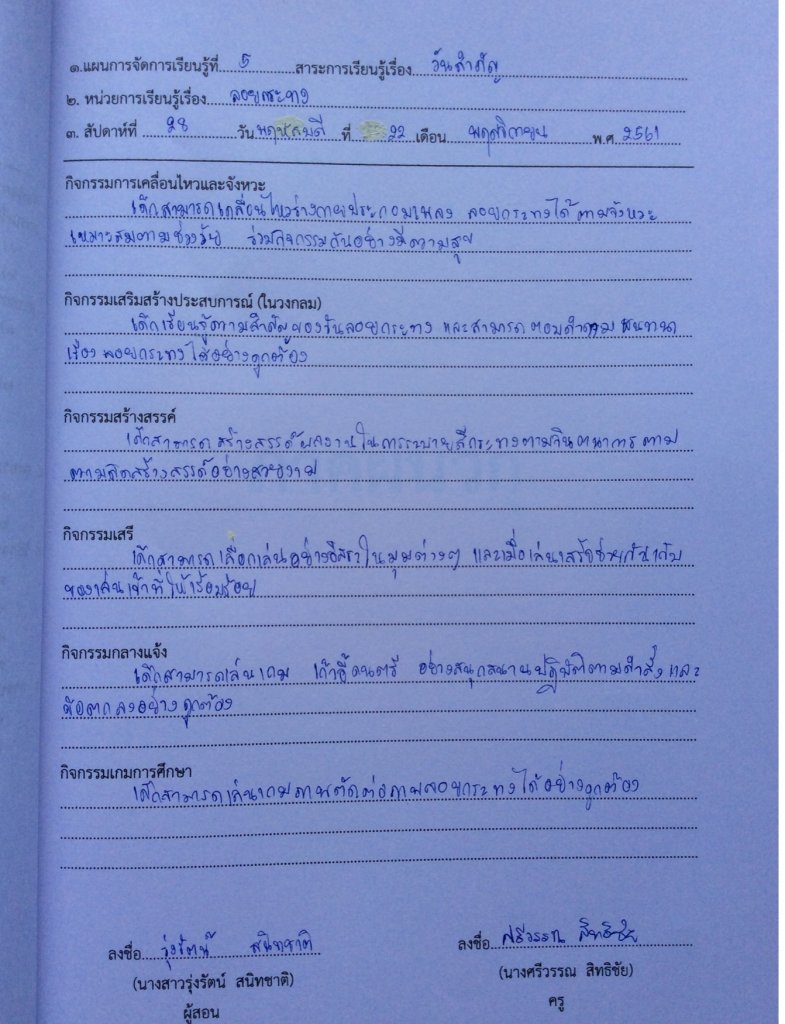 ๑.แผนการจัดการเรียนรู้ที่ 5 สาระการเรียนรู้เรื่อง วันสำคัญ
๒. หน่วยการเรียนรู้เรื่อง ลอยกระทง
๓. สัปดาห์ที่ 28 วัน พฤหัสบดี ที่ 22 เดือน พฤศจิกายน พ.ศ. 2561
กิจกรรมการเคลื่อนไหวและจังหวะ
เด็กสามารถเคลื่อนไหวร่างกายประกอบเพลง ลอยกระทงได้ตามจังหวะ
เหมาะสมตามช่วงวัย ร่วมกิจกรรมกันอย่างมีความสุข
กิจกรรมเสริมสร้างประสบการณ์ (ในวงกลม)
เด็กเรียนรู้ความสำคัญของวันลอยกระทง และสามารถตอบคำถาม สนทนา
เรื่อง ลอยกระทง ได้อย่างถูกต้อง
กิจกรรมสร้างสรรค์
เด็กสามารถ สร้างสรรค์ผลงานในการระบายสีกระทงตามจินตนาการ ตาม
ความคิดสร้างสรรค์อย่างสวยงาม
กิจกรรมเสรี
เด็กสามารถเลือกเล่นอย่างอิสระในมุมต่างๆ และเมื่อเล่นเสร็จช่วยกันเก็บ
ของเล่นเข้าที่ให้เรียบร้อย
กิจกรรมกลางแจ้ง
เด็กสามารถเล่นเกม เก้าอี้ดนตรี อย่างสนุกสนานปฏิบัติตามคำสั่ง และ
ข้อตกลงอย่างถูกต้อง
กิจกรรมเกมการศึกษา
เด็กสามารถเล่นเกมภาพตัดต่อภาพลอยกระทงได้อย่างถูกต้อง
ลงชื่อ รุ่งรัตน์ สนิทชาติ
(นางสาวรุ่งรัตน์ สนิทชาติ)
ผู้สอน
ลงชื่อ ศรีวรรณ สิทธิชัย
(นางศรีวรรณ สิทธิชัย)
ครู